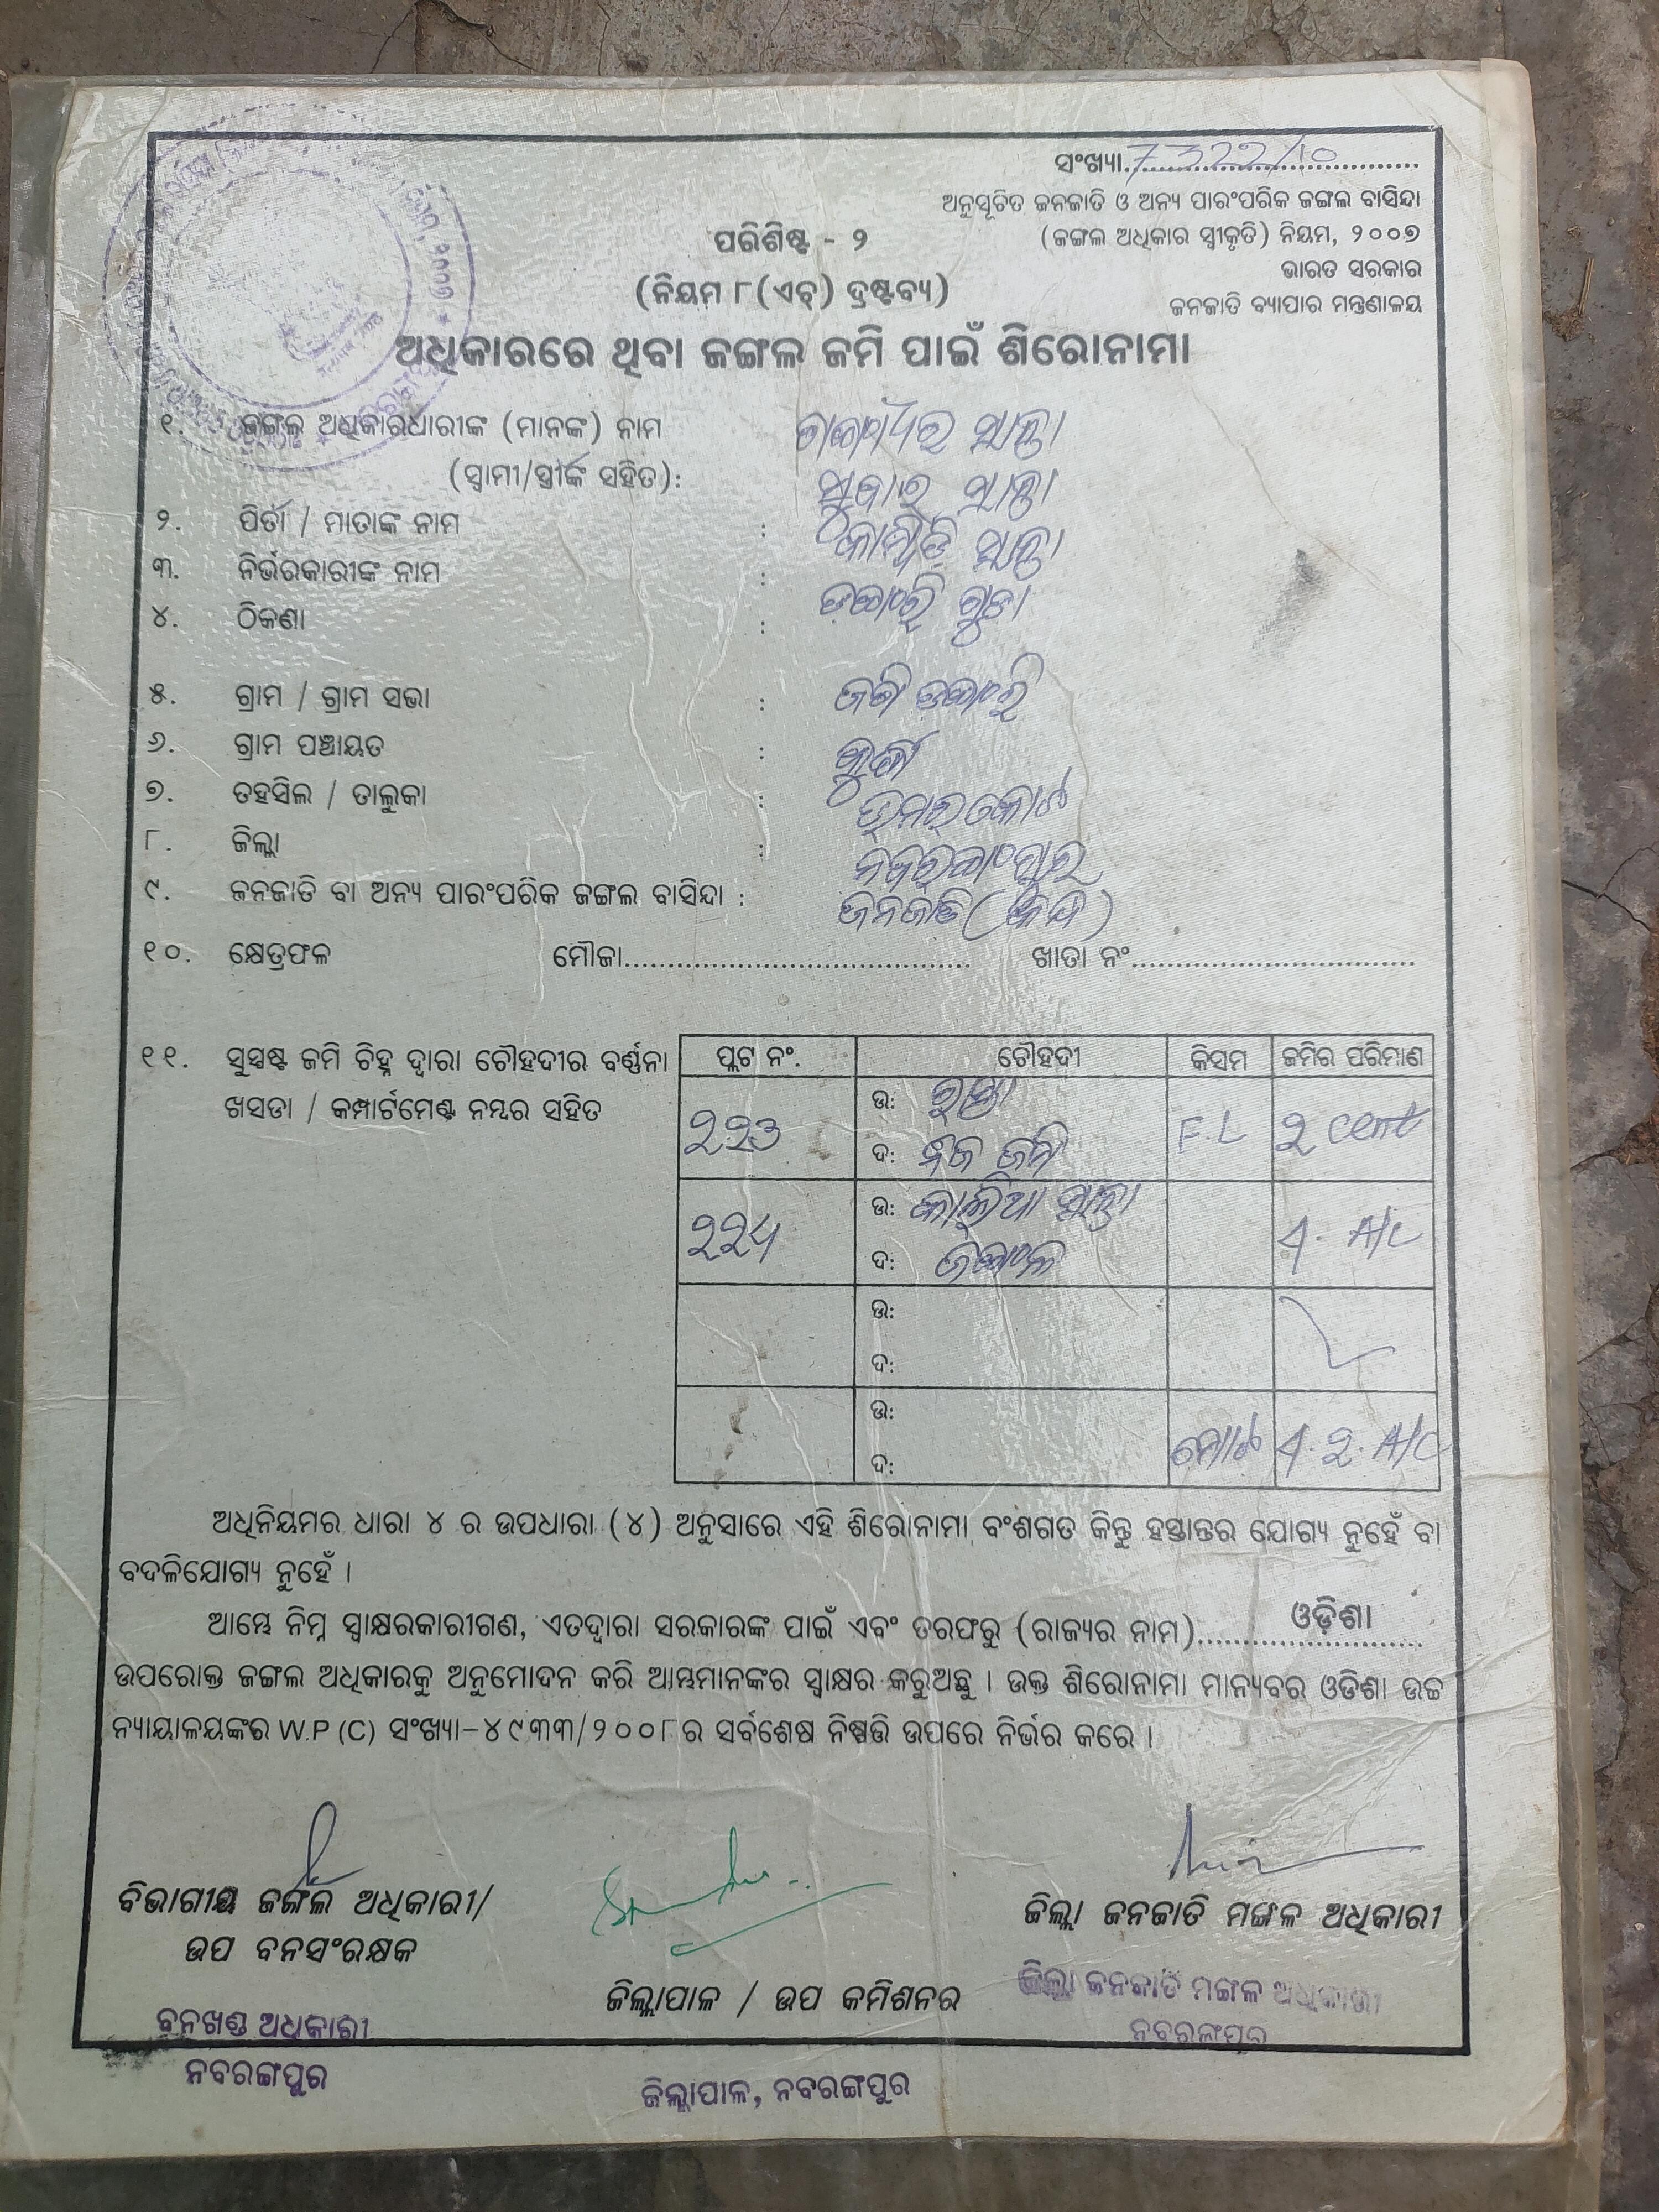 ସଂଖ୍ୟା. 7322/10
ଅନୁସୂଚିତ ଜନଜାତି ଓ ଅନ୍ୟ ପାରଂପରିକ ଜଙ୍ଗଲ ବାସିନ୍ଦା
(ଜଙ୍ଗଲ ଅଧିକାର ସ୍ୱୀକୃତି) ନିୟମ, ୨୦୦୭
ଭାରତ ସରକାର
ଜନଜାତି ବ୍ୟାପାର ମନ୍ତ୍ରଣାଳୟ
ପରିଶିଷ୍ଟ - ୨
(ନିୟମ ୮(ଏଚ୍) ଦ୍ରଷ୍ଟବ୍ୟ)
ଅଧିକାରରେ ଥିବା ଜଙ୍ଗଲ ଜମି ପାଇଁ ଶିରୋନାମା
୧. ଜଙ୍ଗଲ ଅଧିକାରଧାରୀଙ୍କ (ମାନଙ୍କ) ନାମ
(ସ୍ୱାମୀ/ସ୍ତ୍ରୀଙ୍କ ସହିତ):
୨. ପିତା / ମାତାଙ୍କ ନାମ :
୩. ନିର୍ଭରକାରୀଙ୍କ ନାମ :
୪. ଠିକଣା :
୫. ଗ୍ରାମ / ଗ୍ରାମ ସଭା :
୬. ଗ୍ରାମ ପଞ୍ଚାୟତ :
୭. ତହସିଲ / ତାଲୁକା : ଉମରକୋଟ
୮. ଜିଲ୍ଲା : ନବରଙ୍ଗପୁର
୯. ଜନଜାତି ବା ଅନ୍ୟ ପାରଂପରିକ ଜଙ୍ଗଲ ବାସିନ୍ଦା : ଜନଜାତି
୧୦. କ୍ଷେତ୍ରଫଳ ମୌଜା ଖାତା ନଂ
୧୧. ସୁସ୍ପଷ୍ଟ ଜମି ଚିହ୍ନ ଦ୍ୱାରା ଚୌହଦୀର ବର୍ଣ୍ଣନା
ଖସଡା / କମ୍ପାର୍ଟମେଣ୍ଟ ନମ୍ବର ସହିତ
ପ୍ଲଟ ନଂ. ଚୌହଦୀ କିସମ ଜମିର ପରିମାଣ
୨୨୬ ଉ: ରାସ୍ତା F.L ୨ cent
ଦ: ନିଜ ଜମି
ଉ: A/C
ଦ: ଜଙ୍ଗଲ
ଉ:
ଦ:
ଉ: ମୋଟ A/C
ଦ:
ଅଧିନିୟମର ଧାରା ୪ ର ଉପଧାରା (୪) ଅନୁସାରେ ଏହି ଶିରୋନାମା ବଂଶଗତ କିନ୍ତୁ ହସ୍ତାନ୍ତର ଯୋଗ୍ୟ ନୁହେଁ ବା
ବଦଳିଯୋଗ୍ୟ ନୁହେଁ ।
ଆମ୍ଭେ ନିମ୍ନ ସ୍ୱାକ୍ଷରକାରୀଗଣ, ଏତଦ୍ୱାରା ସରକାରଙ୍କ ପାଇଁ ଏବଂ ତରଫରୁ (ରାଜ୍ୟର ନାମ) ଓଡ଼ିଶା
ଉପରୋକ୍ତ ଜଙ୍ଗଲ ଅଧିକାରକୁ ଅନୁମୋଦନ କରି ଆମ୍ଭମାନଙ୍କର ସ୍ୱାକ୍ଷର କରୁଅଛୁ । ଉକ୍ତ ଶିରୋନାମା ମାନ୍ୟବର ଓଡିଶା ଉଚ୍ଚ
ନ୍ୟାୟାଳୟଙ୍କର W.P (C) ସଂଖ୍ୟା-୪୯୩୩/୨୦୦୮ ର ସର୍ବଶେଷ ନିଷ୍ପତ୍ତି ଉପରେ ନିର୍ଭର କରେ ।
ବିଭାଗୀୟ ଜଙ୍ଗଲ ଅଧିକାରୀ/
ଉପ ବନସଂରକ୍ଷକ
ଜିଲ୍ଲାପାଳ / ଉପ କମିଶନର
ଜିଲ୍ଲା ଜନଜାତି ମଙ୍ଗଳ ଅଧିକାରୀ
ଜିଲ୍ଲା ଜନଜାତି ମଙ୍ଗଳ ଅଧିକାରୀ
ନବରଙ୍ଗପୁର
ବନଖଣ୍ଡ ଅଧିକାରୀ
ନବରଙ୍ଗପୁର
ଜିଲ୍ଲାପାଳ, ନବରଙ୍ଗପୁର